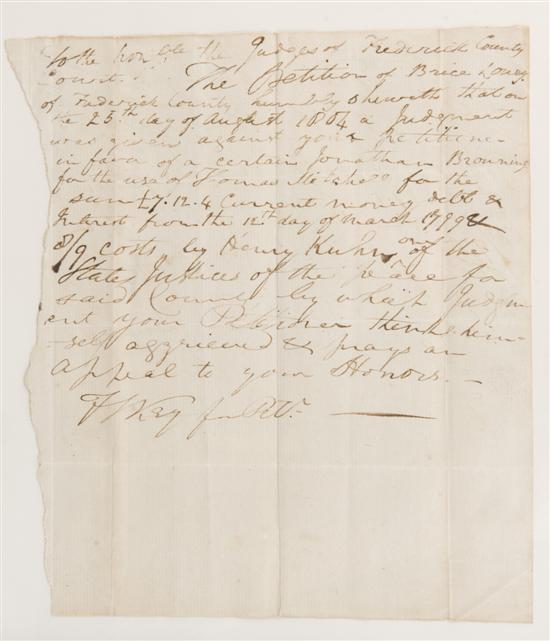 To the honble the Judges of Frederick County
Court. The Petition of Brice
of Frederick County humbly sheweth that on
the 25th day of August 1804 a Judgment
was given against your Petitione-
in favor of a certain Jonathan Browning
for the use of Thomas for the
sum £7.12.4 Current money debt &
Interest from the 12th day of March 1799 &
3/9 costs by Henry Kuhn on of the
States Justices of the peace for
said County by which Judgm
ent your Petitioner thinks him-
-self aggrieved & prays an
appeal to your Honors. —
F S Key for Petr.